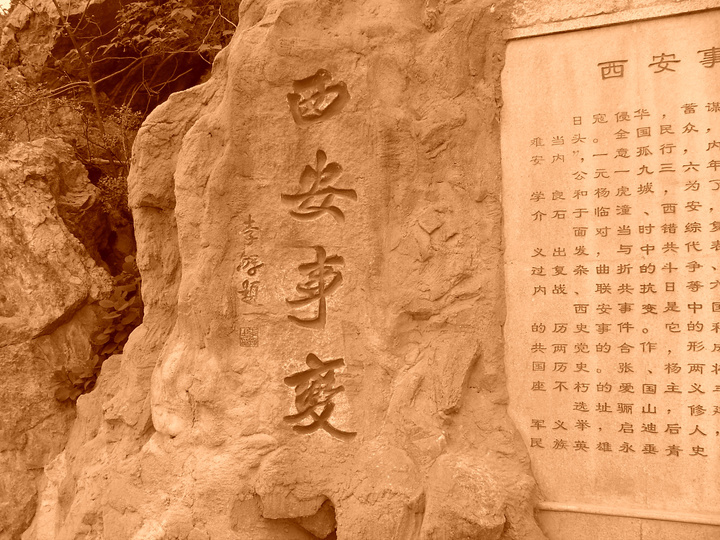 西安事變
李
题
西安事
日寇侵华，蓄谋
难当头。全国民众，
安内”，一意孤行，内
公元一九三六年
学良和杨虎城，为了
介石于临潼、西安，
面对当时错综复
义出发，与中共代表、
过复杂、曲折的斗争、
内战、联共抗日等六
西安事变是中国
的历史事件。它的和
共两党的合作，形成
国历史。张、杨两将
座不朽的爱国主义
选址骊山，修建，
军义举，启迪后人
民族英雄永垂青史